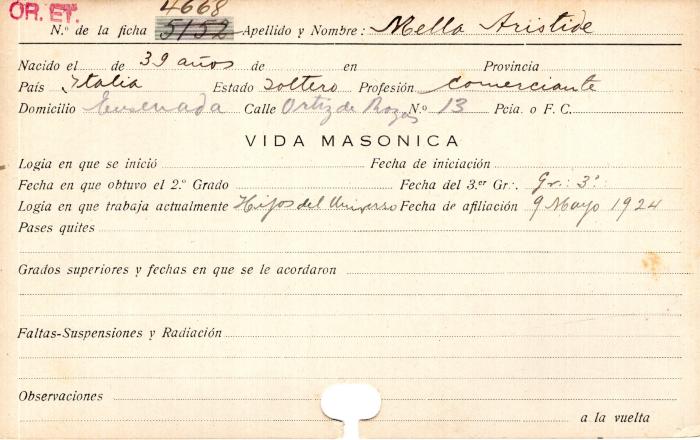 OR. ET.
4668
N.º de la ficha 5152 Apellido y Nombre: Mella Aristide
Nacido el de 39 años de en Provincia
País Italia Estado Soltero Profesión Comerciante
Domicilio Ensenada Calle Ortiz de Rozas N.º 13 Pcia. o F. C.
VIDA MASONICA
Logia en que se inició Fecha de iniciación
Fecha en que obtuvo el 2.º Grado Fecha del 3.er Gr∴ Gr∴ 3º
Logia en que trabaja actualmente Hijos del Universo Fecha de afiliación 9 Mayo 1924
Pases quites
Grados superiores y fechas en que se le acordaron
Faltas-Suspensiones y Radiación
Observaciones
a la vuelta